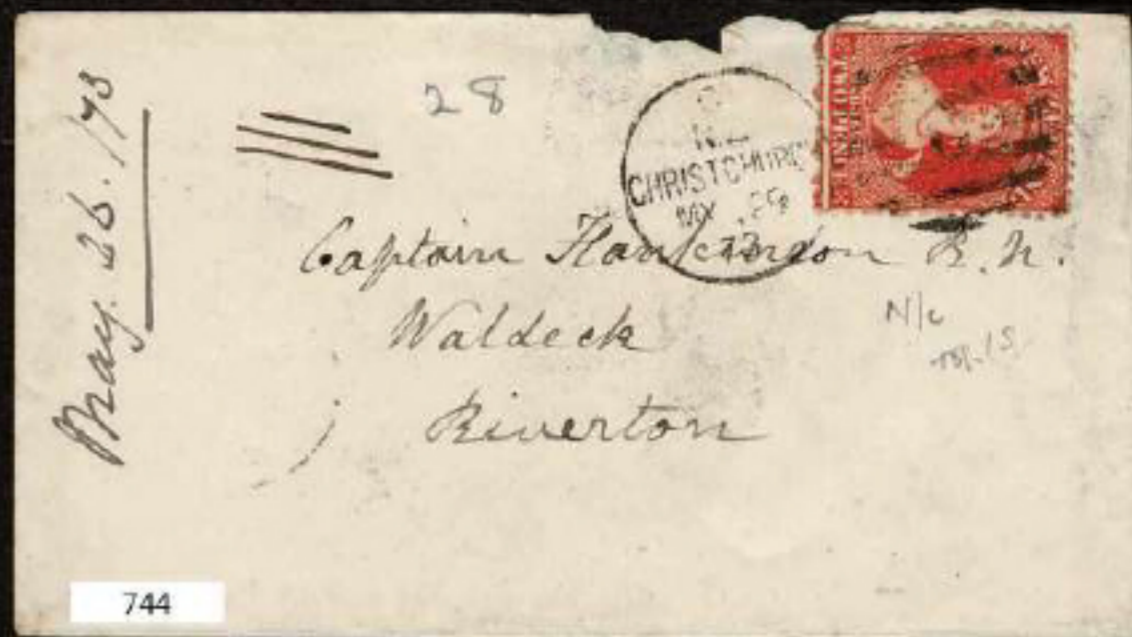 May. 26. /73
28
N.Z
CHRISTCHURCH
MY
73
TWO PENCE
Captain Hankinson R. N.
Waldeck
Riverton
N/c
744